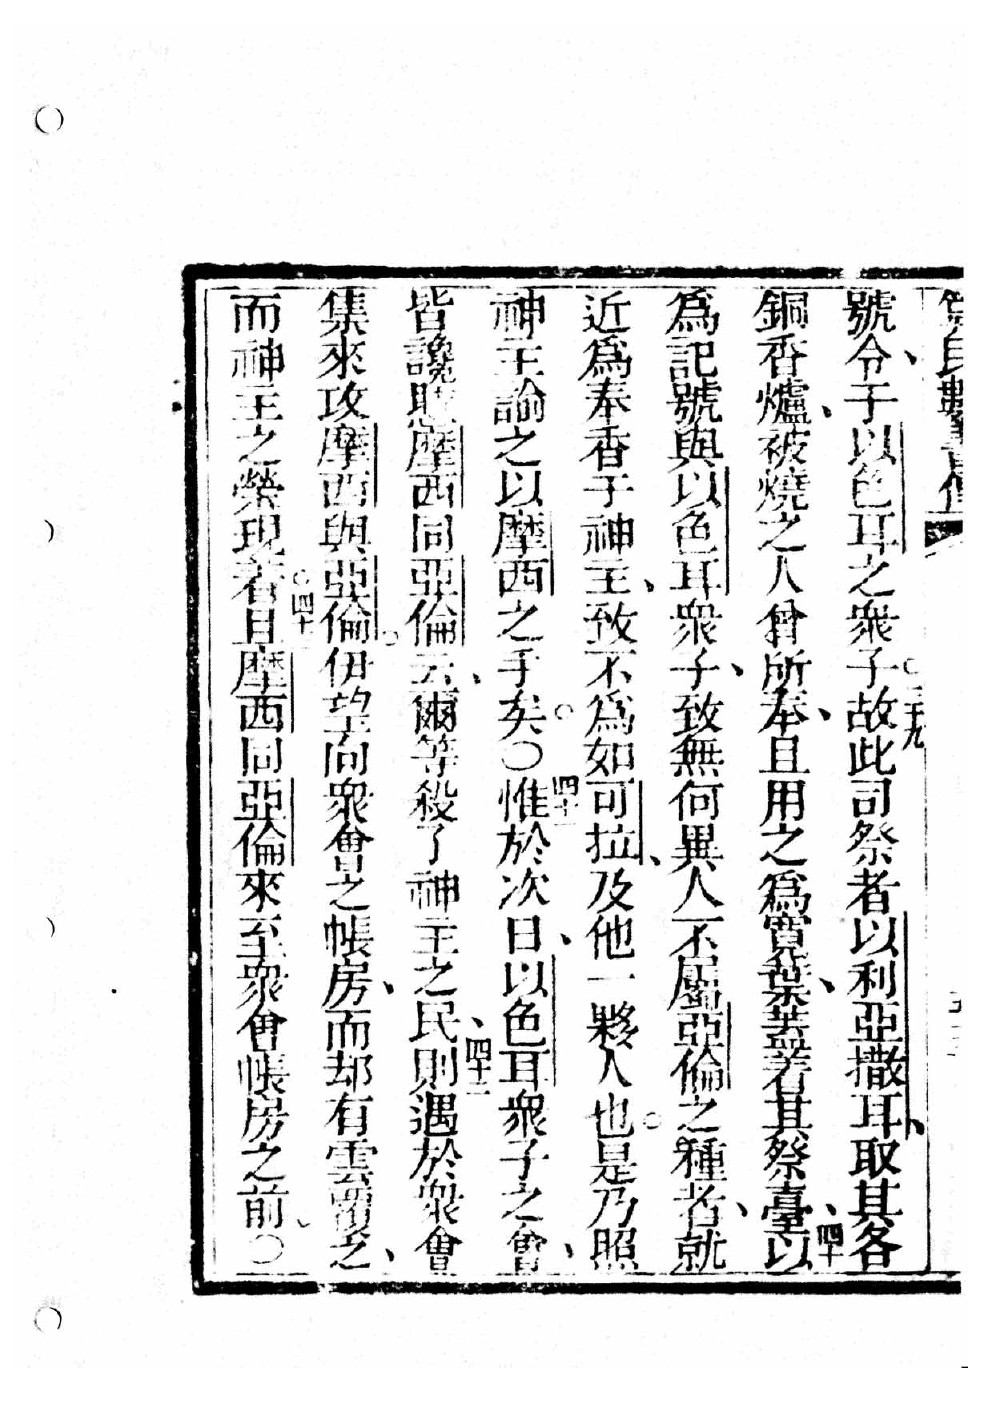 民數書傳
號令于以色耳之衆子。三十九故此司祭者以利亞撒耳、取其各
銅香爐、被燒之人曾所奉、且用之爲寬葉、葢着其祭臺、四十以
爲記號與以色耳衆子、致無何異人不屬亞倫之種者、就
近爲奉香于神主、致不爲如可拉、及他一夥人也。是乃照
神主諭之以摩西之手矣。〇四十一惟於次日、以色耳衆子之會、
皆讒懟摩西同亞倫云、爾等殺了神主之民、四十二則遇於衆會
集來攻摩西與亞倫。伊望向衆會之帳房、而却有雲覆之、
而神主之榮現着。四十三且摩西同亞倫來至衆會帳房之前。〇